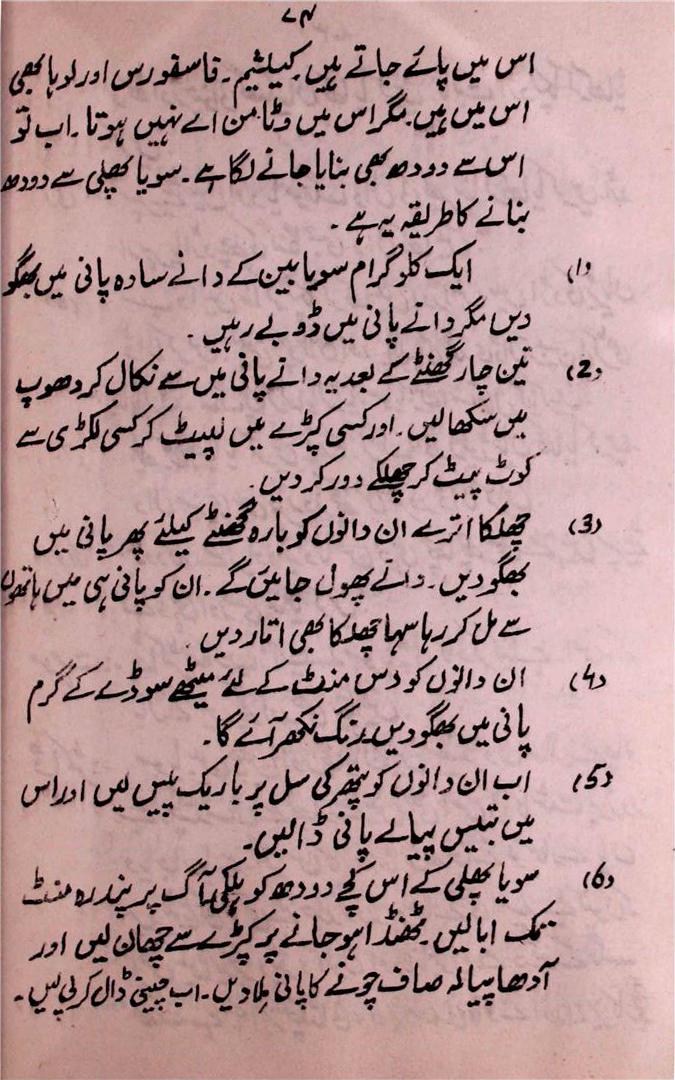 ۷۴
اس میں پائے جاتے ہیں۔ کیلشیم۔ فاسفورس اور لوہا بھی
اس میں ہیں۔ مگر اس میں وٹامن اے نہیں ہوتا۔ اب تو
اس سے دودھ بھی بنایا جانے لگا ہے۔ سویا پھلی سے دودھ
بنانے کا طریقہ یہ ہے۔
(1) ایک کلو گرام سویا بین کے دانے سادہ پانی میں بھگو
دیں مگر دانے پانی میں ڈوبے رہیں۔
(2) تین چار گھنٹے کے بعد یہ دانے پانی میں سے نکال کر دھوپ
میں سکھا لیں۔ اور کسی کپڑے میں لپیٹ کر کسی لکڑی سے
کوٹ پیٹ کر چھلکے دور کر دیں۔
(3) چھلکا اترے ان دانوں کو بارہ گھنٹے کیلئے پھر پانی میں
بھگو دیں۔ دانے پھول جائیں گے۔ ان کو پانی ہی میں ہاتھوں
سے مل کر رہا سہا چھلکا بھی اتار دیں۔
(4) ان دانوں کو دس منٹ کے لئے میٹھے سوڈے کے گرم
پانی میں بھگو دیں رنگ نکھر آئے گا۔
(5) اب ان دانوں کو پتھر کی سل پر باریک پیس لیں اور اس
میں تیس پیالے پانی ڈالیں۔
(6) سویا پھلی کے اس کچے دودھ کو ہلکی آگ پر پندرہ منٹ
تک ابالیں۔ ٹھنڈا ہو جانے پر کپڑے سے چھان لیں اور
آدھا پیالہ صاف چونے کا پانی ملا دیں۔ اب چینی ڈال کر پی لیں۔